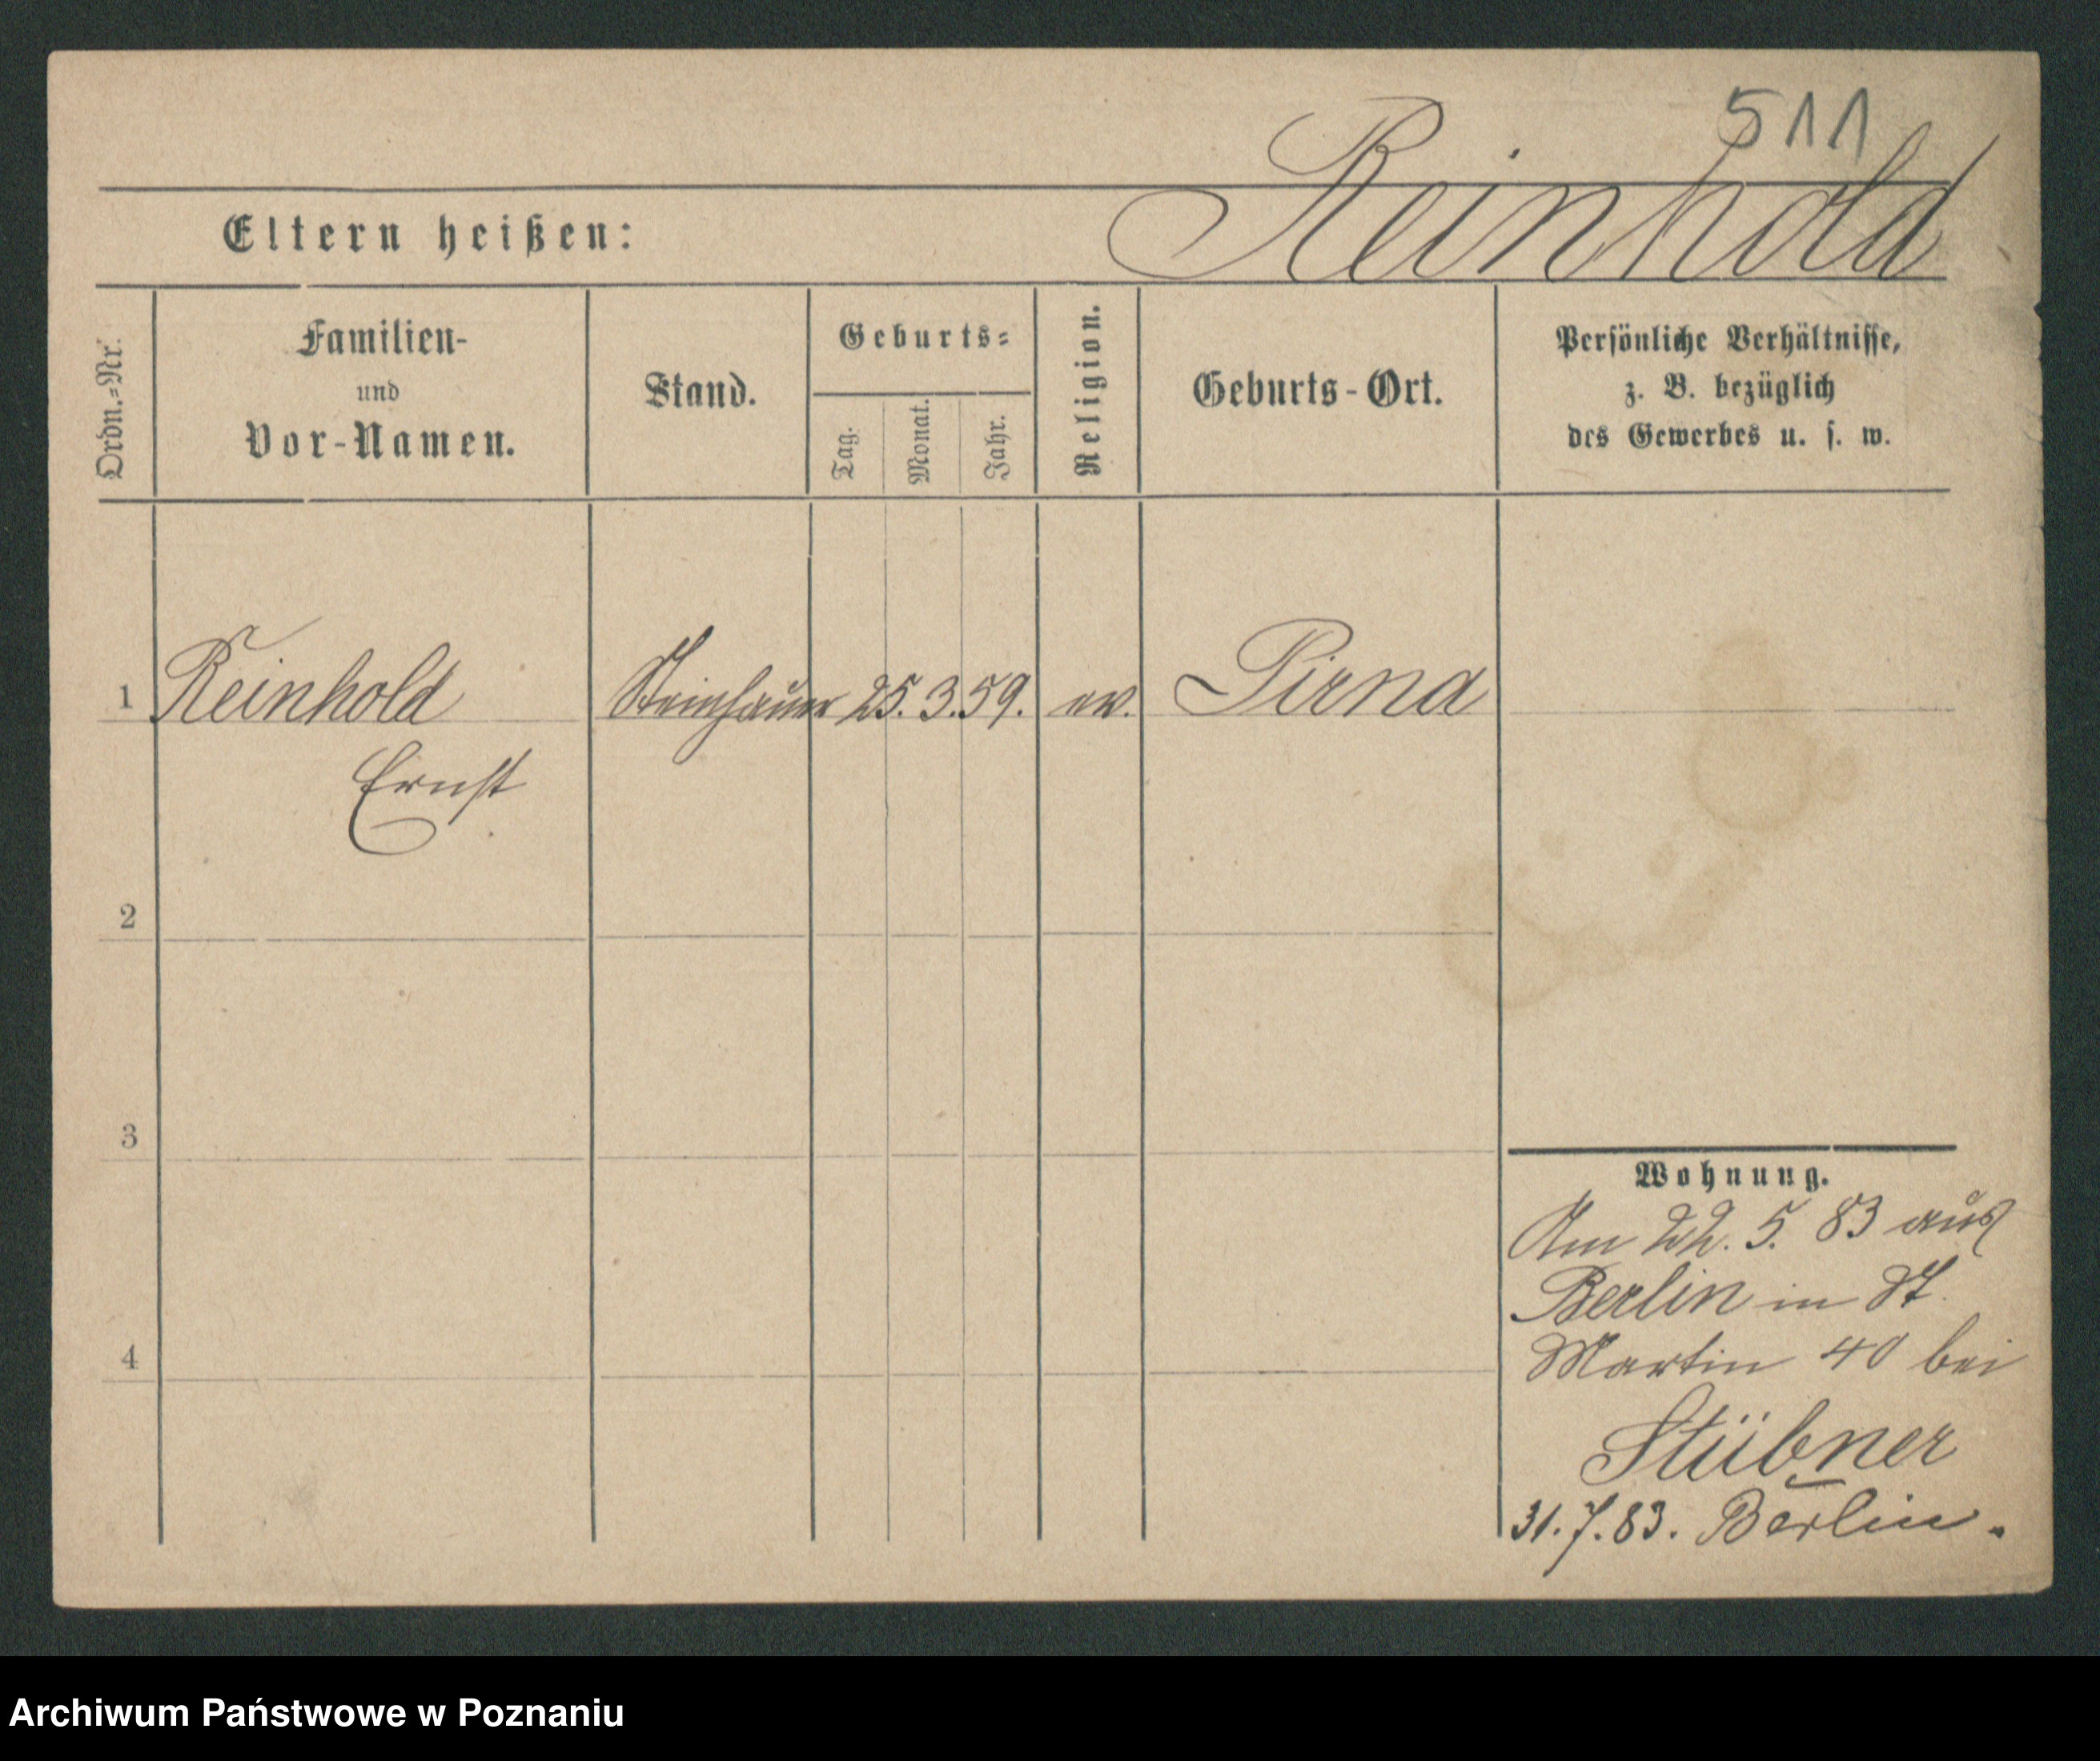 511
Reinhold
Eltern heißen:
Ordn.=Nr.
Familien-
und
Vor-Namen.
Stand.
Geburts=
Tag.
Monat.
Jahr.
Religion.
Geburts-Ort.
Persönliche Verhältnisse,
z. B. bezüglich
des Gewerbes u. s. w.
1 Reinhold Steinhauer 25. 3. 59. ev. Pirna
Ernst
2
3
4
Wohnung.
Am 22. 5. 83 aus
Berlin in St.
Martin 40 bei
Stübner
31. 7. 83. Berlin.
Archiwum Państwowe w Poznaniu